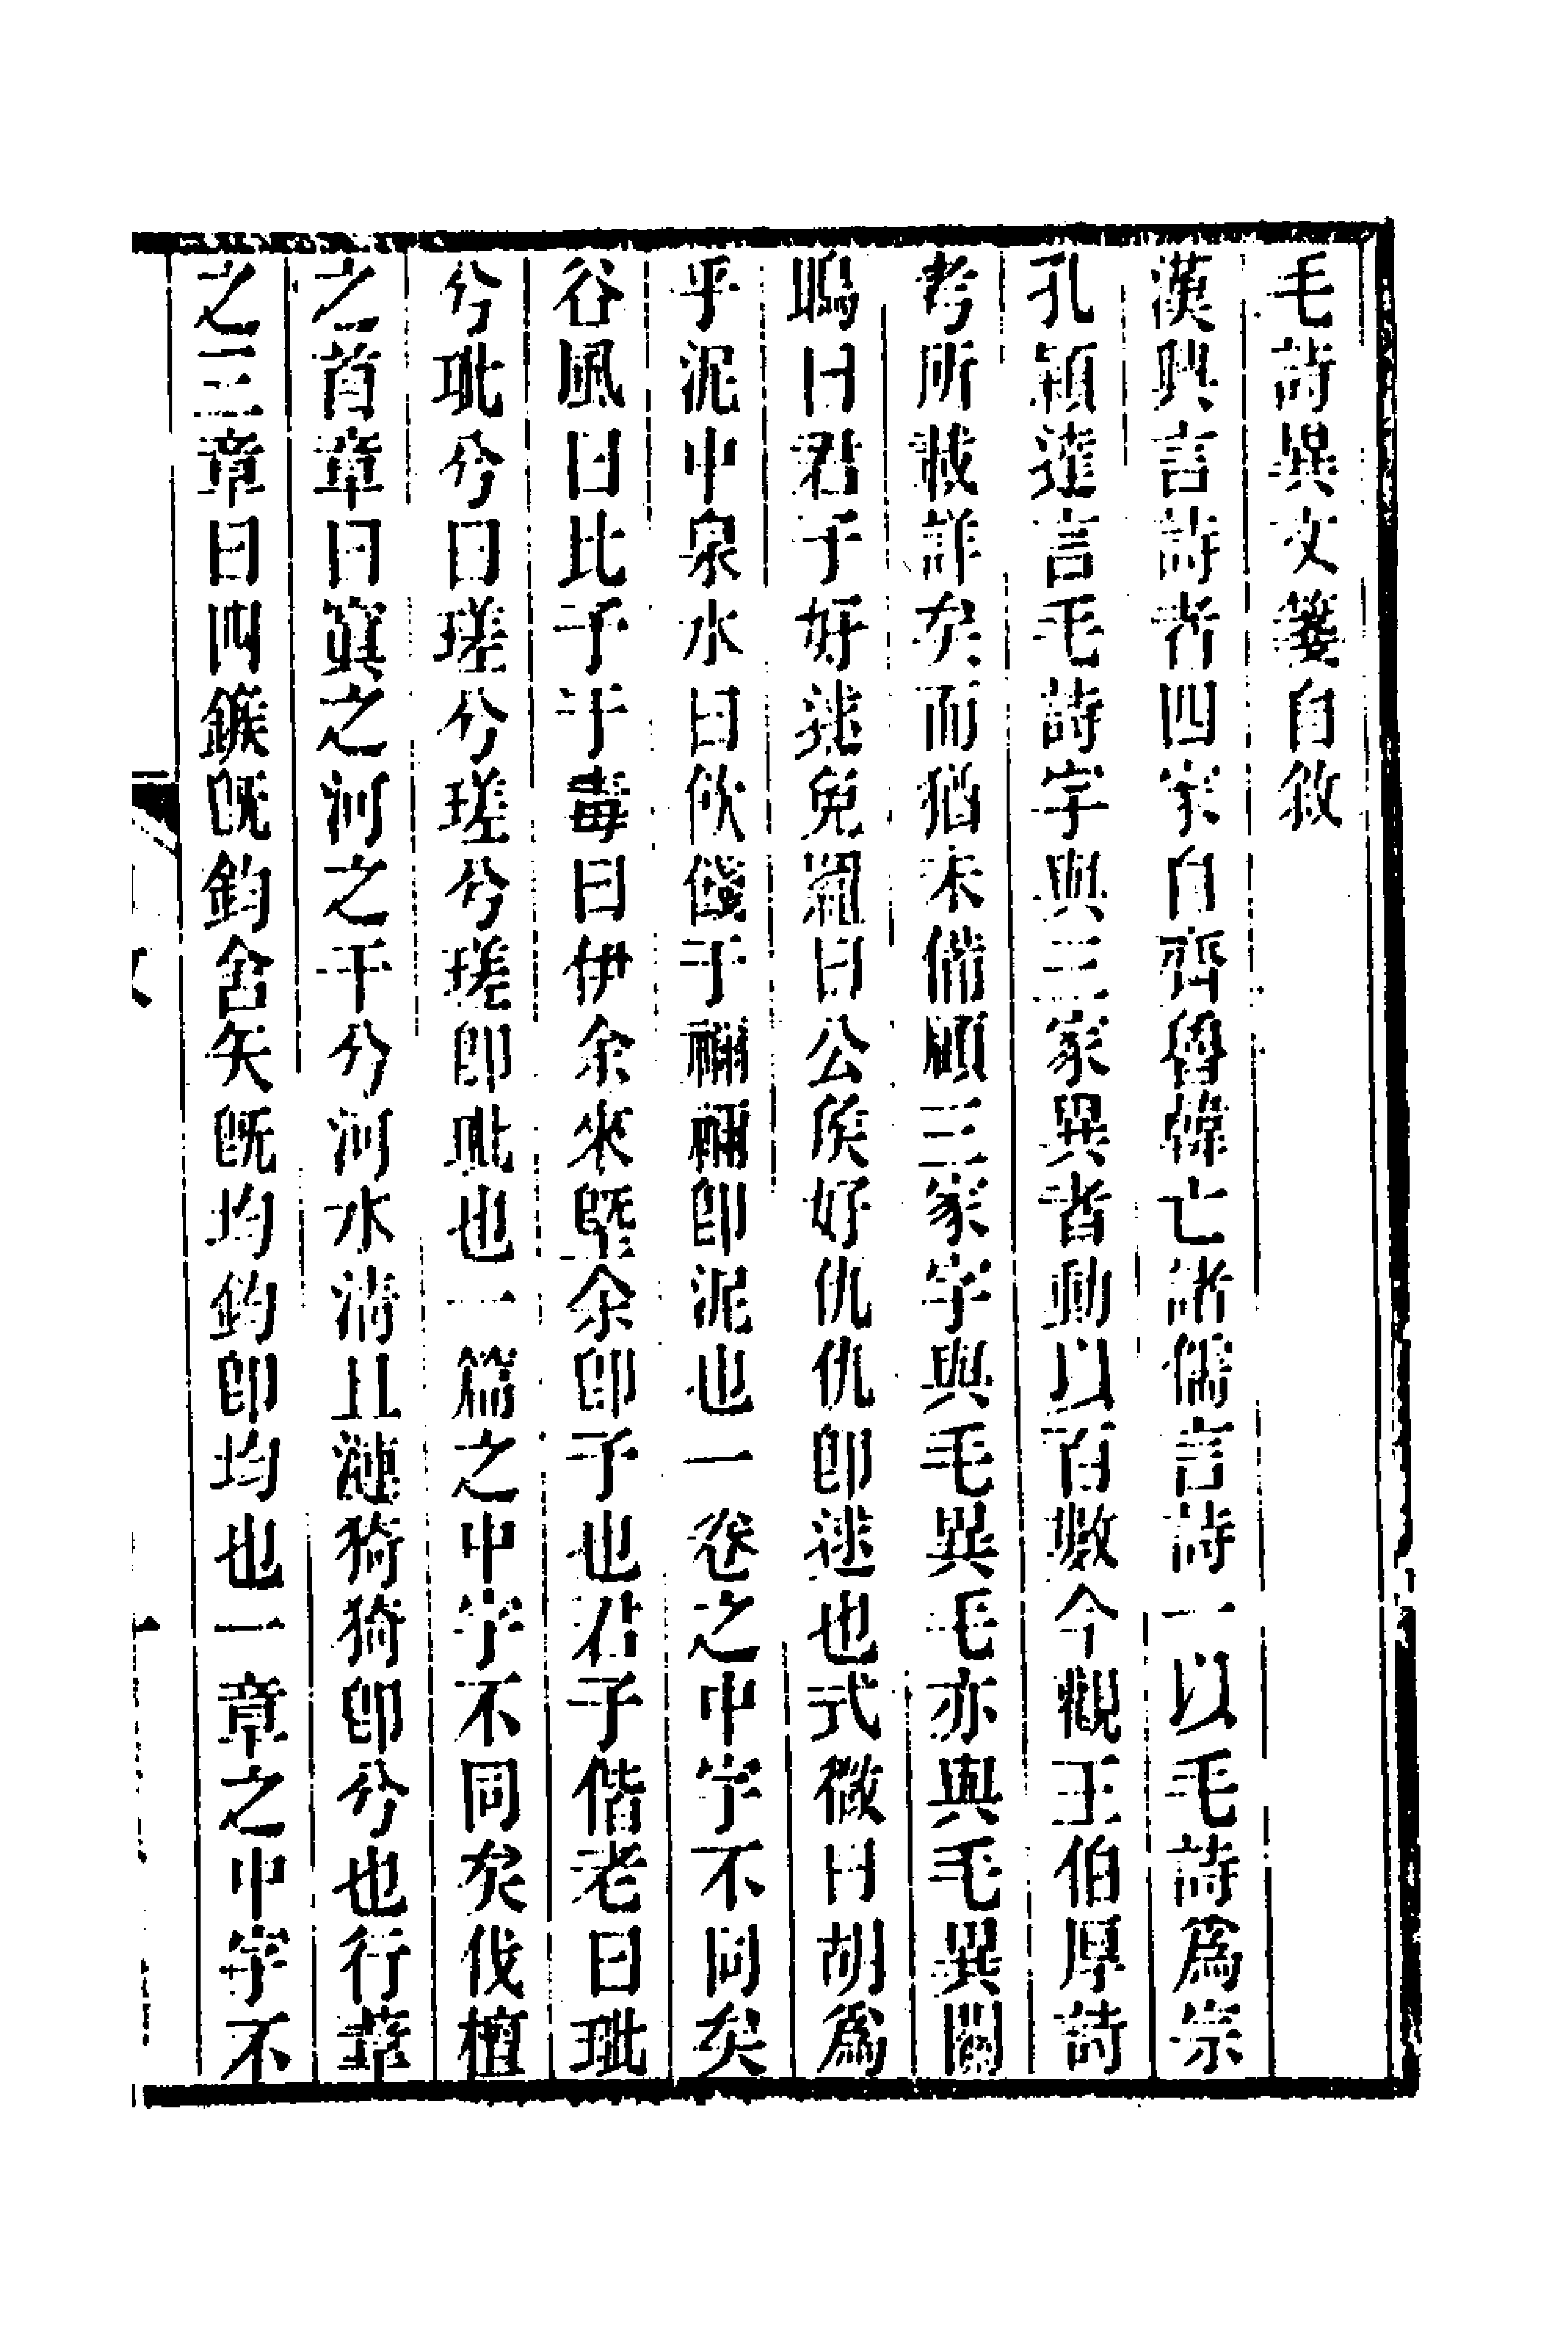 毛詩異文箋自敘
漢興言詩者四家自齊魯韓亡諸儒言詩一以毛詩爲宗
孔穎達言毛詩字與三家異者動以百數今觀王伯厚詩
考所載詳矣而猶未備顧三家字與毛異毛亦與毛異關
鴡曰君子好逑兔罝曰公侯好仇仇卽逑也式微曰胡爲
乎泥中泉水曰飲餞于禰禰卽泥也一卷之中字不同矣
谷風曰比予于毒曰伊余來塈余卽予也君子偕老曰玼
兮玼兮曰瑳兮瑳兮瑳卽玼也一篇之中字不同矣伐檀
之首章曰寘之河之干兮河水淸且漣猗猗卽兮也行葦
之三章曰四鍭旣鈞舍矢旣均鈞卽均也一章之中字不